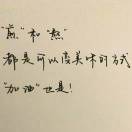 “煎”和“熬”
都是可以变美味的方式
“加油”也是！